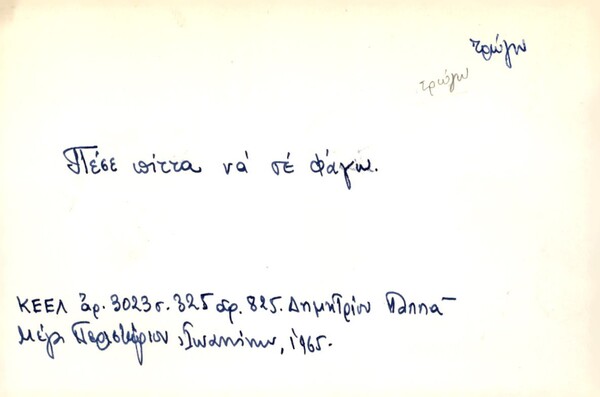 τρώγω
τρώγω
Πέσε πίττα νά σέ φάγω.
ΚΕΕΛ ἀρ. 3023 σ. 325 ἀρ. 825. Δημητρίου Παππᾶ
Μέγα Περιστέριον, Ἰωαννίνων, 1965.